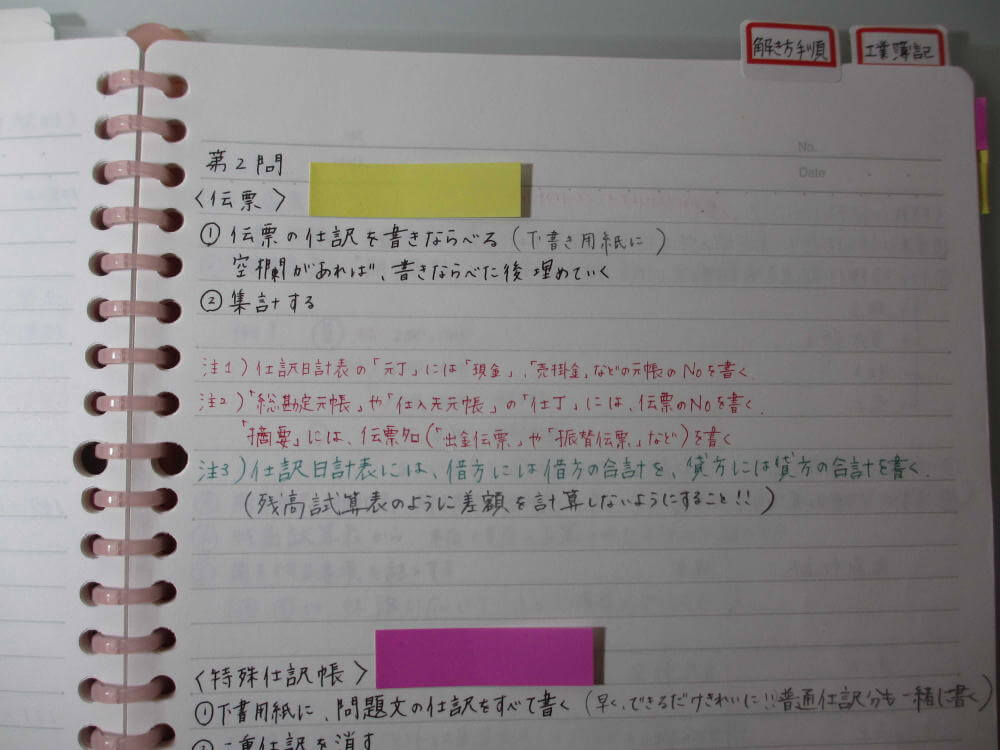 解き方手順
工業簿記
No.
Date
第2問
〈伝票〉
① 伝票の仕訳を書きならべる(下書き用紙に)
空欄があれば、書きならべた後埋めていく
② 集計する
注1)仕訳日計表の「元丁」には「現金」、「売掛金」などの元帳のNoを書く.
注2)「総勘定元帳」や「仕入先元帳」の「仕丁」には、伝票のNoを書く.
「摘要」には、伝票名(「出金伝票」や「振替伝票」など)を書く
注3)仕訳日計表には、借方には借方の合計を、貸方には貸方の合計を書く.
(残高試算表のように差額を計算しないようにすること!!)
〈特殊仕訳帳〉
① 下書用紙に、問題文の仕訳をすべて書く(早く、できるだけきれいに!!普通仕訳分も一緒に書く)
② 二重仕訳を消す